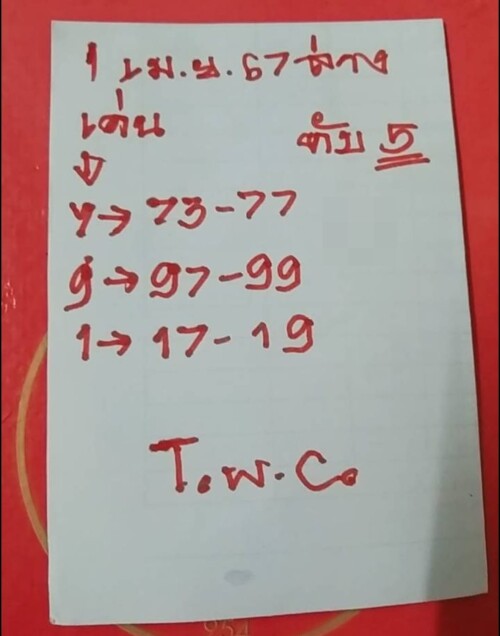 1 เม.ย.67 ล่าง
เด่น ทับ 5
7→ 73-77
9→ 97-99
1→ 17-19
T.พ.C.